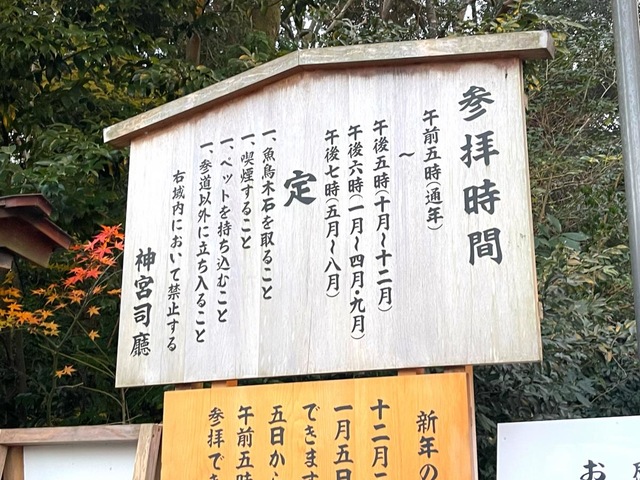 参拝時間
午前五時(通年)
〜
午後五時(十月〜十二月)
午後六時(一月〜四月・九月)
午後七時(五月〜八月)
定
一、魚鳥木石を取ること
一、喫煙すること
一、ペットを持ち込むこと
一、参道以外に立ち入ること
右域内において禁止する
神宮司廳
新年の
十二月
一月五日
できます
五日から
午前五時
参拝でき
お